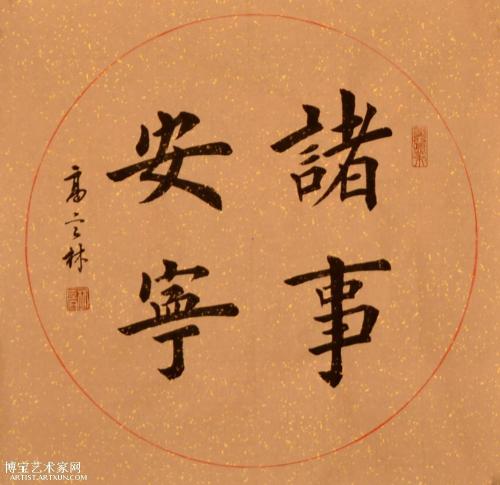 諸事
安寧
高云林
博宝艺术家网
ARTIST.ARTXUN.COM